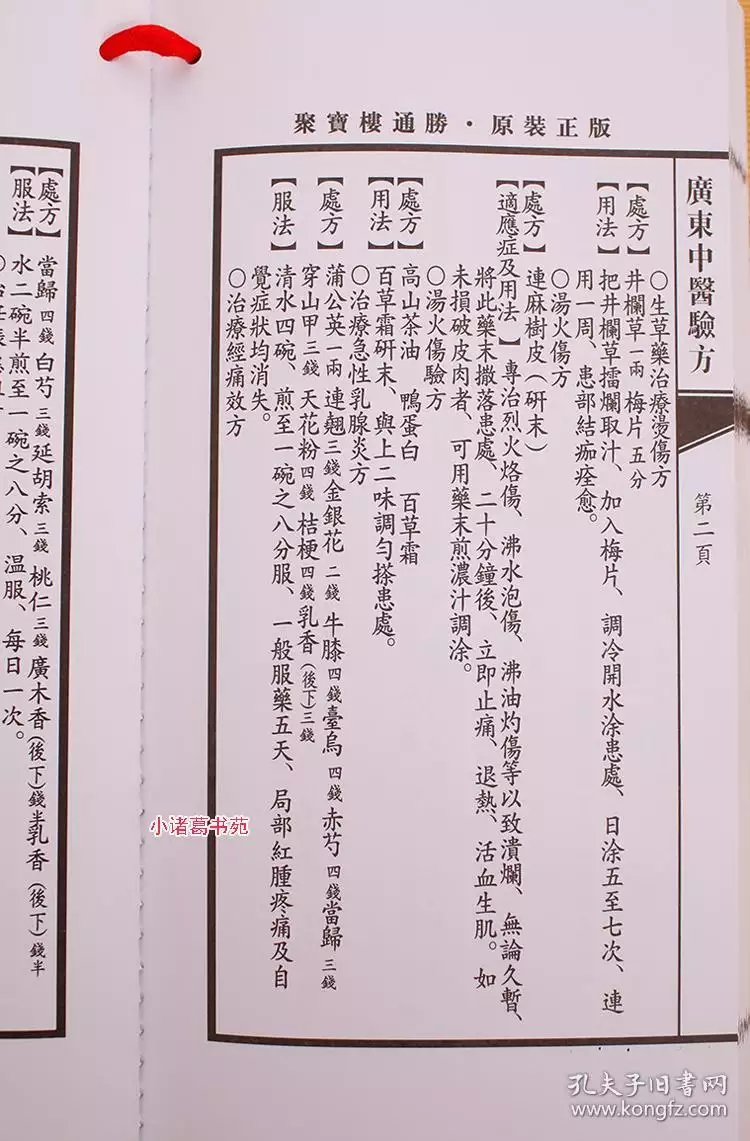 聚寶樓通勝·原裝正版
廣東中醫驗方
第二頁
○生草藥治療燙傷方
【處方】井欄草一兩 梅片五分
【用法】把井欄草擂爛取汁、加入梅片、調冷開水涂患處、日涂五至七次、連
用一周、患部結痂痊愈。
○湯火傷方
【處方】連麻樹皮（研末）
【適應症及用法】專治烈火烙傷、沸水泡傷、沸油灼傷等以致潰爛、無論久暫、
將此藥末撒落患處、二十分鐘後、立即止痛、退熱、活血生肌。如
未損破皮肉者、可用藥末煎濃汁調涂。
○湯火傷驗方
【處方】高山茶油 鴨蛋白 百草霜
【用法】百草霜研末、與上二味調勻搽患處。
○治療急性乳腺炎方
【處方】蒲公英一兩 連翹三錢金銀花二錢 牛膝四錢臺烏四錢 赤芍四錢當歸三錢
穿山甲三錢 天花粉四錢 桔梗四錢乳香(後下)三錢
【服法】清水四碗、煎至一碗之八分服、一般服藥五天、局部紅腫疼痛及自
覺症狀均消失。
○治療經痛效方
【處方】當歸四錢 白芍三錢延胡索三錢 桃仁三錢廣木香(後下)錢半乳香(後下)錢半
【服法】水二碗半煎至一碗之八分、溫服、每日一次。
小诸葛书苑
孔夫子旧书网
www.kongfz.com